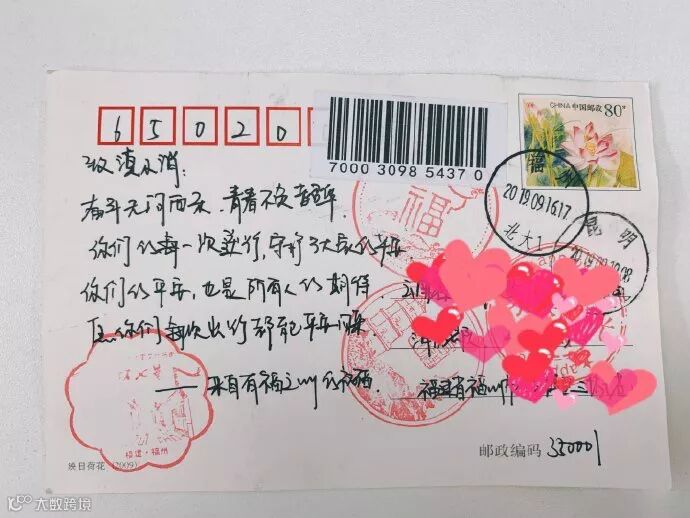 CHINA 中国邮政 80分
65020
7000 3098 5437 0
致滇小消:
奋斗无问西东,青春不负韶华.
你们的每一次逆行,守护了大家的平安.
你们的平安,也是所有人的期待.
愿你们每次出的都能平安归来
——来自有福之州的祝福
福
福州
2019.09.16.17
北大1
昆明
福建省福州
三
福建·福州
映日荷花 (2009)
邮政编码 350001
大数跨境